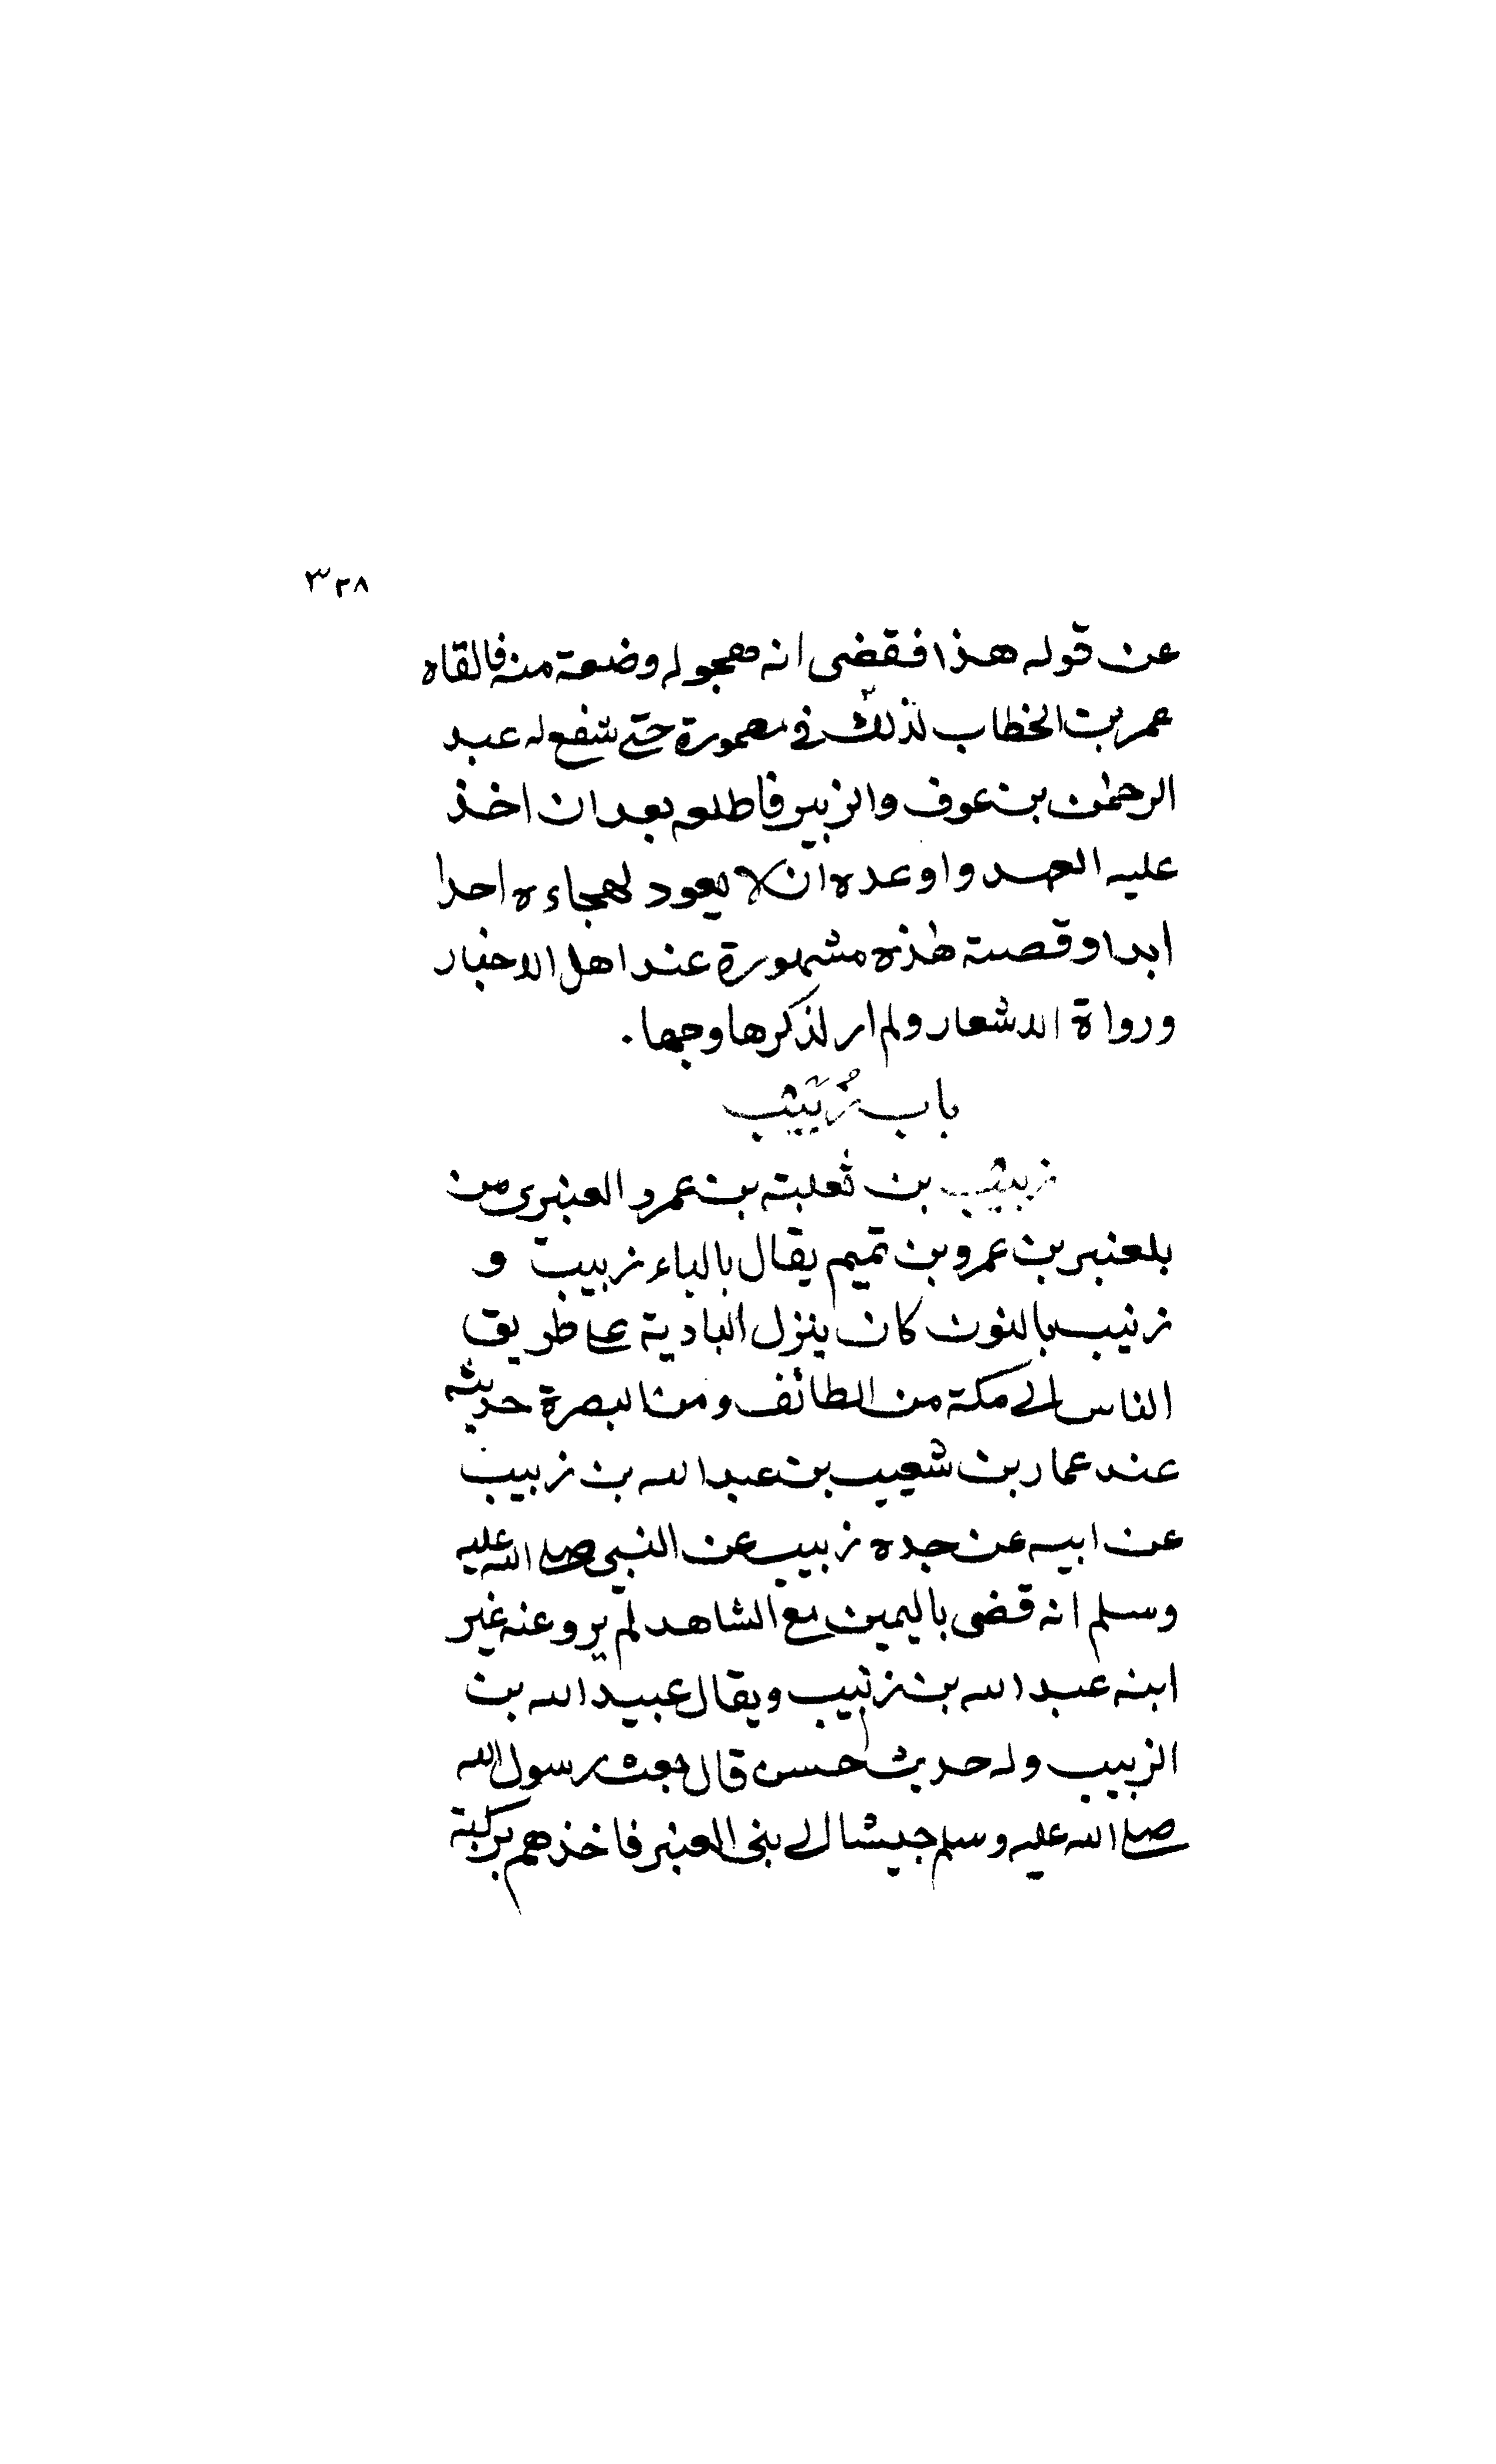 ٣٢٨
عن قوله هذا فقضى انه هجو له وضعة منه فالقاه
عمر بن الخطاب لذلك في مهمورة حتى شفع له عبد
الرحمن بن عوف والزبير فاطلقه بعد ان اخذ
عليه العهد واوعده ان لا يعود لهجاءه احدا
ابدا وقصته هذه مشهورة عند اهل الاخبار
ورواة الاشعار ولم ار لذكرها وجها.
باب زُبَيب
زبيب بن ثعلبة بن عمرو العنبري من
بلعنبر بن عمرو بن تميم يقال بالباء زبيب و
زنيب بالنون كان ينزل البادية على طريق
الناس الى مكة من الطائف ومن البصرة حديثه
عند عمار بن شعيب بن عبد الله بن زبيب
عن ابيه عن جده زبيب عن النبي صلى الله عليه
وسلم انه قضى باليمين مع الشاهد لم يرو عنه غير
ابنه عبد الله بن زنيب ويقال عبيد الله بن
الزبيب وله حديث حسن قال بعث رسول الله
صلى الله عليه وسلم جيشا الى بني العنبر فاخذهم بركبة